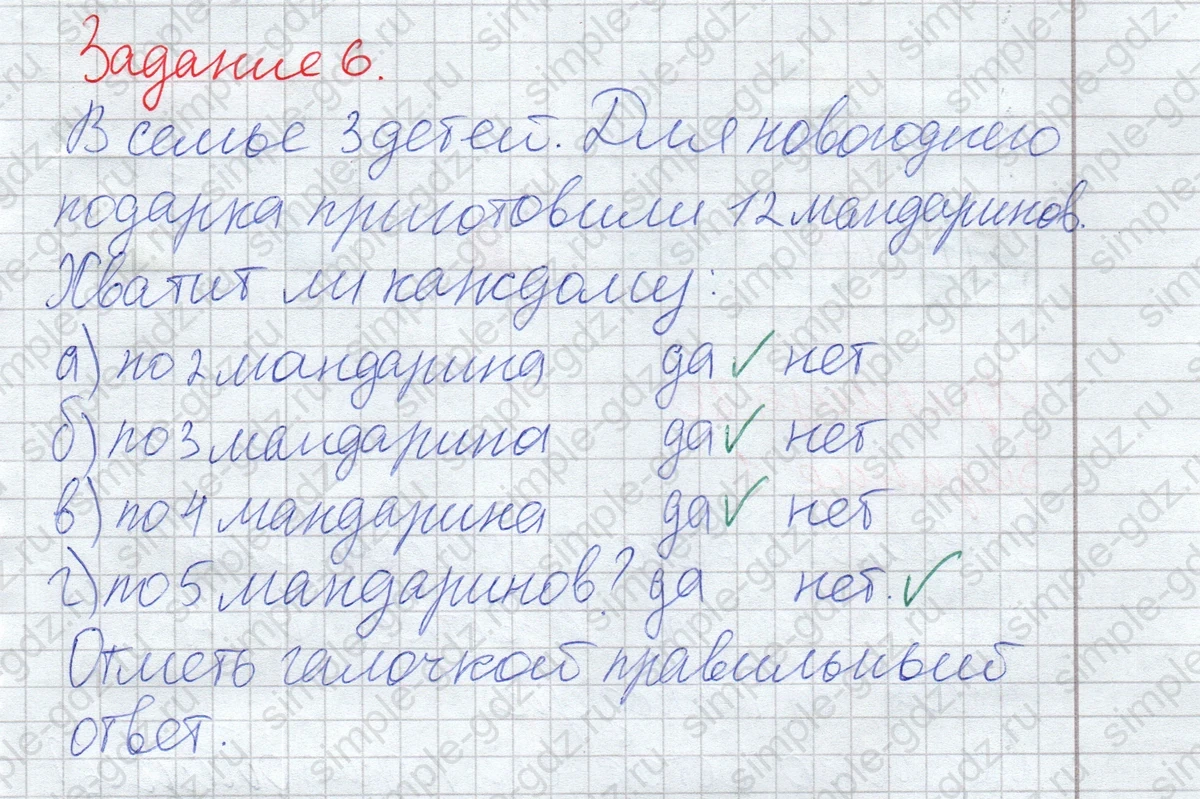 Задание 6.
В семье 3 детей. Для новогоднего
подарка приготовили 12 мандаринов.
Хватит ли каждому:
а) по 2 мандарина да ✓ нет
б) по 3 мандарина да ✓ нет
в) по 4 мандарина да ✓ нет
г) по 5 мандаринов? да нет. ✓
Отметь галочкой правильный
ответ.
simple-gdz.ru